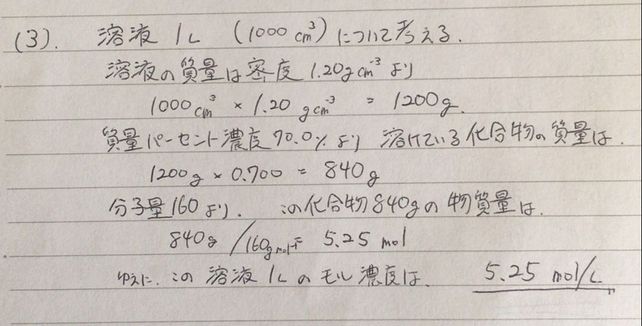 (3). 溶液 1L (1000 cm³) について考える.
溶液の質量は密度 1.20g cm⁻³ より
1000 cm³ × 1.20 g cm⁻³ = 1200g.
質量パーセント濃度70.0%より 溶けている化合物の質量は.
1200g × 0.700 = 840g
分子量160より. この化合物840gの物質量は.
840g / 160g mol⁻¹ = 5.25 mol
ゆえに. この溶液1Lのモル濃度は. 5.25 mol/L